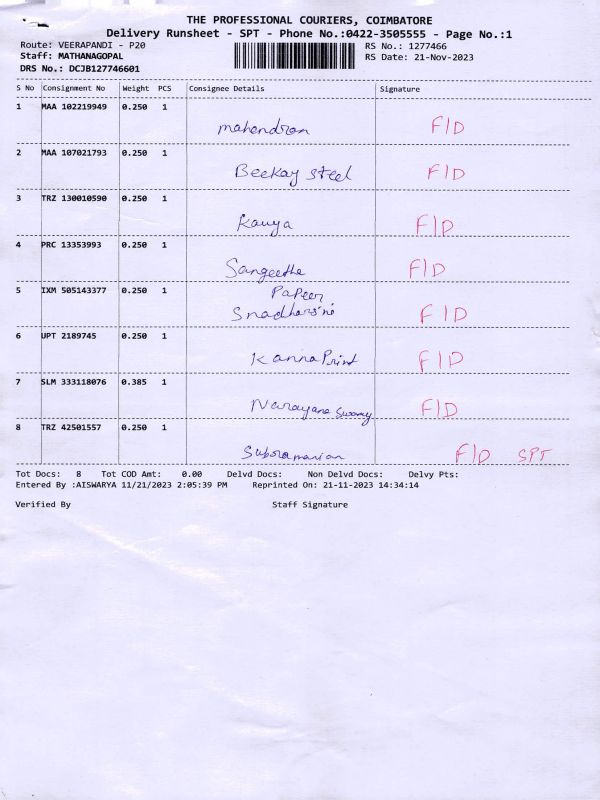 THE PROFESSIONAL COURIERS, COIMBATORE
Delivery Runsheet - SPT - Phone No.:0422-3505555 - Page No.:1
Route: VEERAPANDI - P20 RS No.: 1277466
Staff: MATHANAGOPAL RS Date: 21-Nov-2023
DRS No.: DCJB127746601
S No Consignment No Weight PCS Consignee Details Signature
1 MAA 102219949 0.250 1
mahendran F/D
2 MAA 107021793 0.250 1
Beekay steel F/D
3 TRZ 130010590 0.250 1
Kauya F/D
4 PRC 13353993 0.250 1
Sangeetha F/D
5 IXM 505143377 0.250 1 Papeer
Snadharsini F/D
6 UPT 2189745 0.250 1
Kanna Print F/D
7 SLM 333118076 0.385 1
Narayana Swamy F/D
8 TRZ 42501557 0.250 1
Subramanian F/D SPT
Tot Docs: 8 Tot COD Amt: 0.00 Delvd Docs: Non Delvd Docs: Delvy Pts:
Entered By :AISWARYA 11/21/2023 2:05:39 PM Reprinted On: 21-11-2023 14:34:14
Verified By Staff Signature